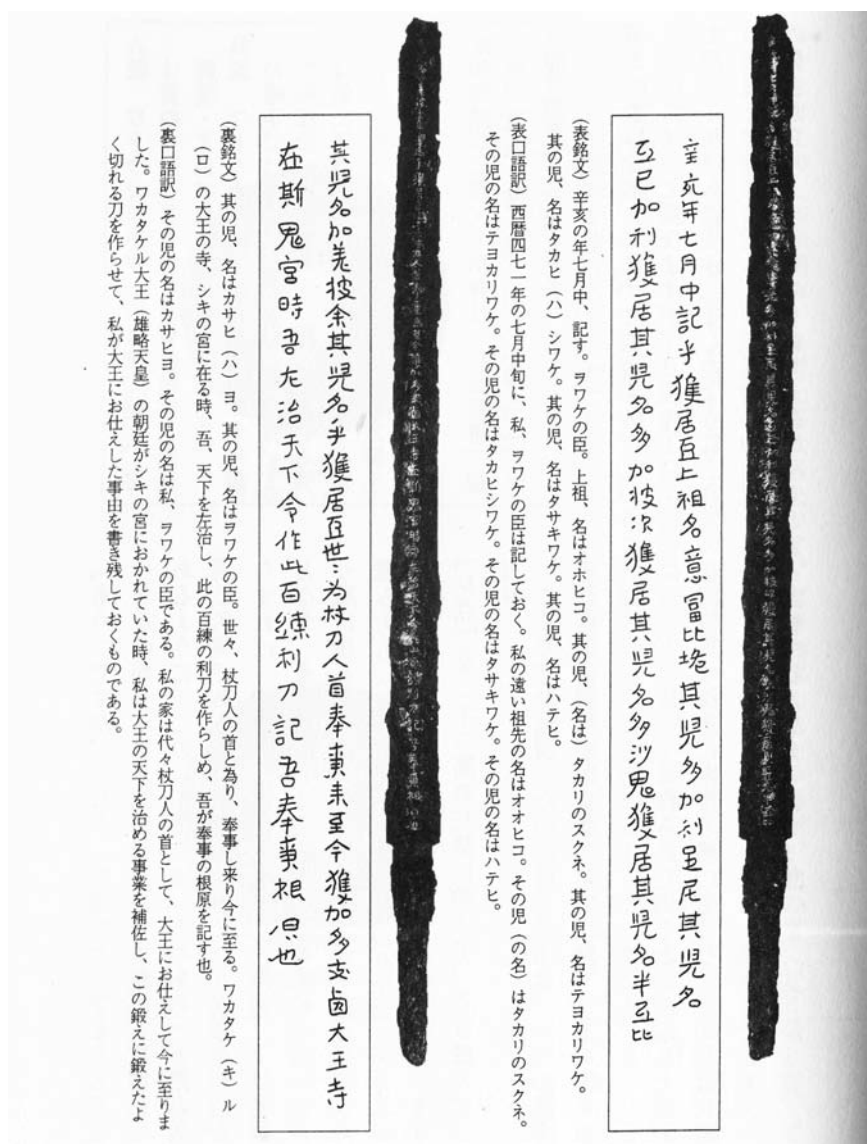 辛亥年七月中記乎獲居臣上祖名意冨比垝其児多加利足尼其児名
弖已加利獲居其児名多加披次獲居其児名多沙鬼獲居其児名半弖比
(表銘文) 辛亥の年七月中、記す。ヲワケの臣。上祖、名はオホヒコ。其の児、(名は) タカリのスクネ。其の児、名はテヨカリワケ。
其の児、名はタカヒ (ハ) シワケ。其の児、名はタサキワケ。其の児、名はハテヒ。
(表口語訳) 西暦四七一年の七月中旬に、私、ヲワケの臣は記しておく。私の遠い祖先の名はオオヒコ。その児 (の名) はタカリのスクネ。
その児の名はテヨカリワケ。その児の名はタカヒシワケ。その児の名はタサキワケ。その児の名はハテヒ。
其児名加差披余其児名乎獲居臣世々為杖刀人首奉事来至今獲加多支鹵大王寺
在斯鬼宮時吾左治天下令作此百練利刀記吾奉事根原也
(裏銘文) 其の児、名はカサヒ (ハ) ヨ。其の児、名はヲワケの臣。世々、杖刀人の首と為り、奉事し来り今に至る。ワカタケ (キ) ル
(ロ) の大王の寺、シキの宮に在る時、吾、天下を左治し、此の百練の利刀を作らしめ、吾が奉事の根原を記す也。
(裏口語訳) その児の名はカサヒヨ。その児の名は私、ヲワケの臣である。私の家は代々杖刀人の首として、大王にお仕えして今に至りま
した。ワカタケル大王 (雄略天皇) の朝廷がシキの宮におかれていた時、私は大王の天下を治める事業を補佐し、この鍛えに鍛えたよ
く切れる刀を作らせて、私が大王にお仕えした事由を書き残しておくものである。